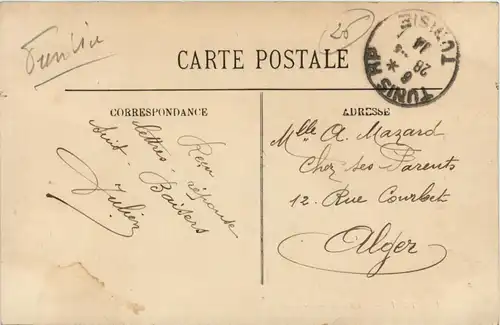 Tunisie
20
CARTE POSTALE
TUNIS RP
8 *
28 -4
14
TUNISIE
CORRESPONDANCE
Reçu
lettres - réponse
suit - Baisers
Julien
ADRESSE
Mlle A. Mazard
Chez ses Parents
12. Rue Courbet
Alger